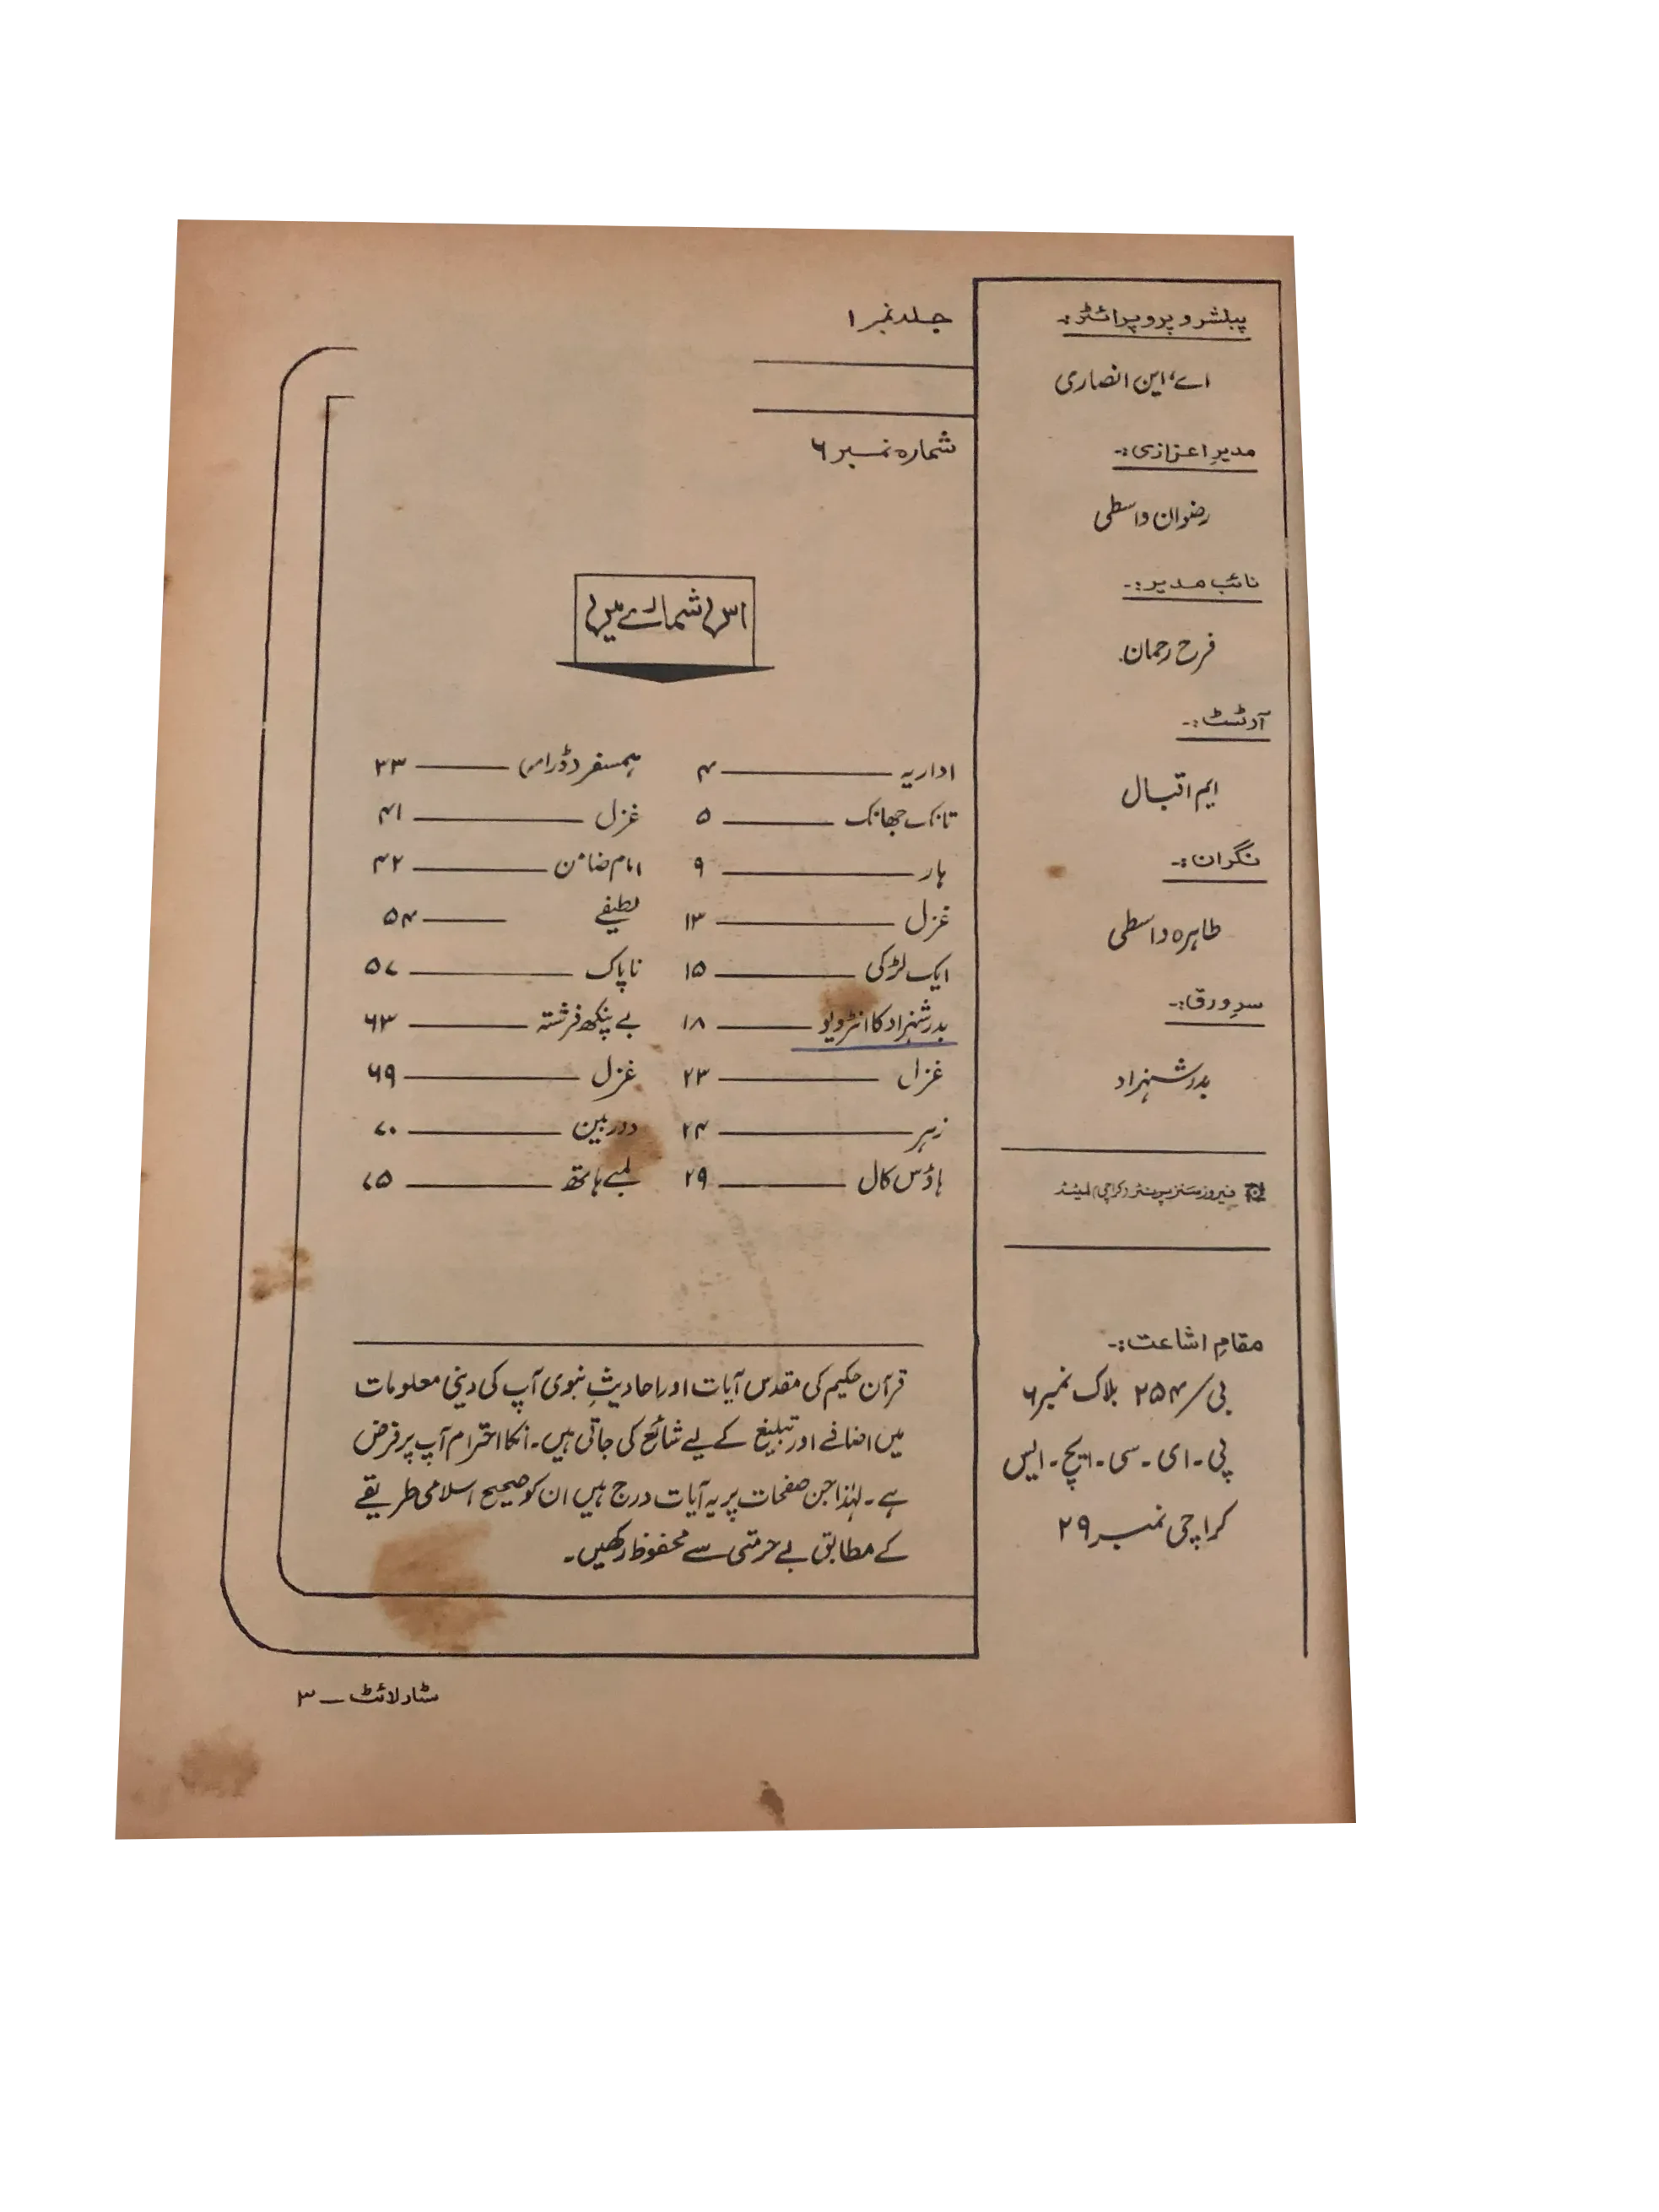 پبلشر و پروپرائٹر:-
اے، این انصاری
مدیرِ اعزازی:-
رضوان واسطی
نائب مدیر:-
فرح رحمان
آرٹسٹ:-
ایم اقبال
نگران:-
طاہرہ واسطی
سرِورق:-
بدر شہزاد
فیروز سنز پرنٹر (کراچی) لمیٹڈ
مقامِ اشاعت:-
بی/۲۵۴ بلاک نمبر ۶
پی۔ای۔سی۔ایچ۔ایس
کراچی نمبر ۲۹
جلد نمبر ۱
شمارہ نمبر ۶
اس شمارے میں
اداریہ ۴
تانک جھانک ۵
ہار ۹
غزل ۱۳
ایک لڑکی ۱۵
بدر شہزاد کا انٹرویو ۱۸
غزل ۲۳
زہر ۲۴
ہاؤس کال ۲۹
ہمسفر (ڈرامہ) ۳۳
غزل ۴۱
امام ضامن ۴۲
لطیفے ۵۴
ناپاک ۵۷
بے پنکھ فرشتہ ۶۳
غزل ۶۹
دوربین ۷۰
لمبے ہاتھ ۷۵
قرآن حکیم کی مقدس آیات اور احادیثِ نبوی آپ کی دینی معلومات
میں اضافے اور تبلیغ کے لیے شائع کی جاتی ہیں۔ انکا احترام آپ پر فرض
ہے۔ لہٰذا جن صفحات پر یہ آیات درج ہیں ان کو صحیح اسلامی طریقے
کے مطابق بے حرمتی سے محفوظ رکھیں۔
سٹار لائٹ — ۳